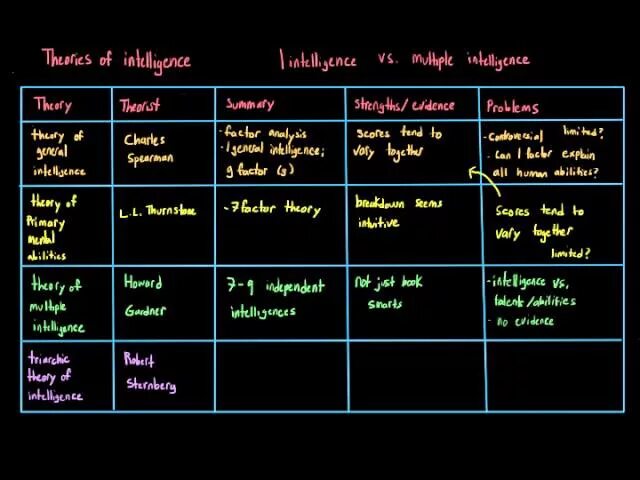 Theories of intelligence
1 intelligence vs. multiple intelligence
Theory
Theorist
Summary
Strengths/evidence
Problems
theory of
general
intelligence
Charles
Spearman
-factor analysis
-1 general intelligence;
g factor (g)
scores tend to
vary together
-Controversial limited?
- Can 1 factor explain
all human abilities?
theory of
Primary
mental
abilities
L.L. Thurnstone
-7 factor theory
breakdown seems
intuitive
scores tend to
vary together
limited?
theory of
multiple
intelligence
Howard
Gardner
7-9 independent
intelligences
Not just book
smarts
-intelligence vs.
talents/abilities
- no evidence
triarchic
theory of
intelligence
Robert
Sternberg